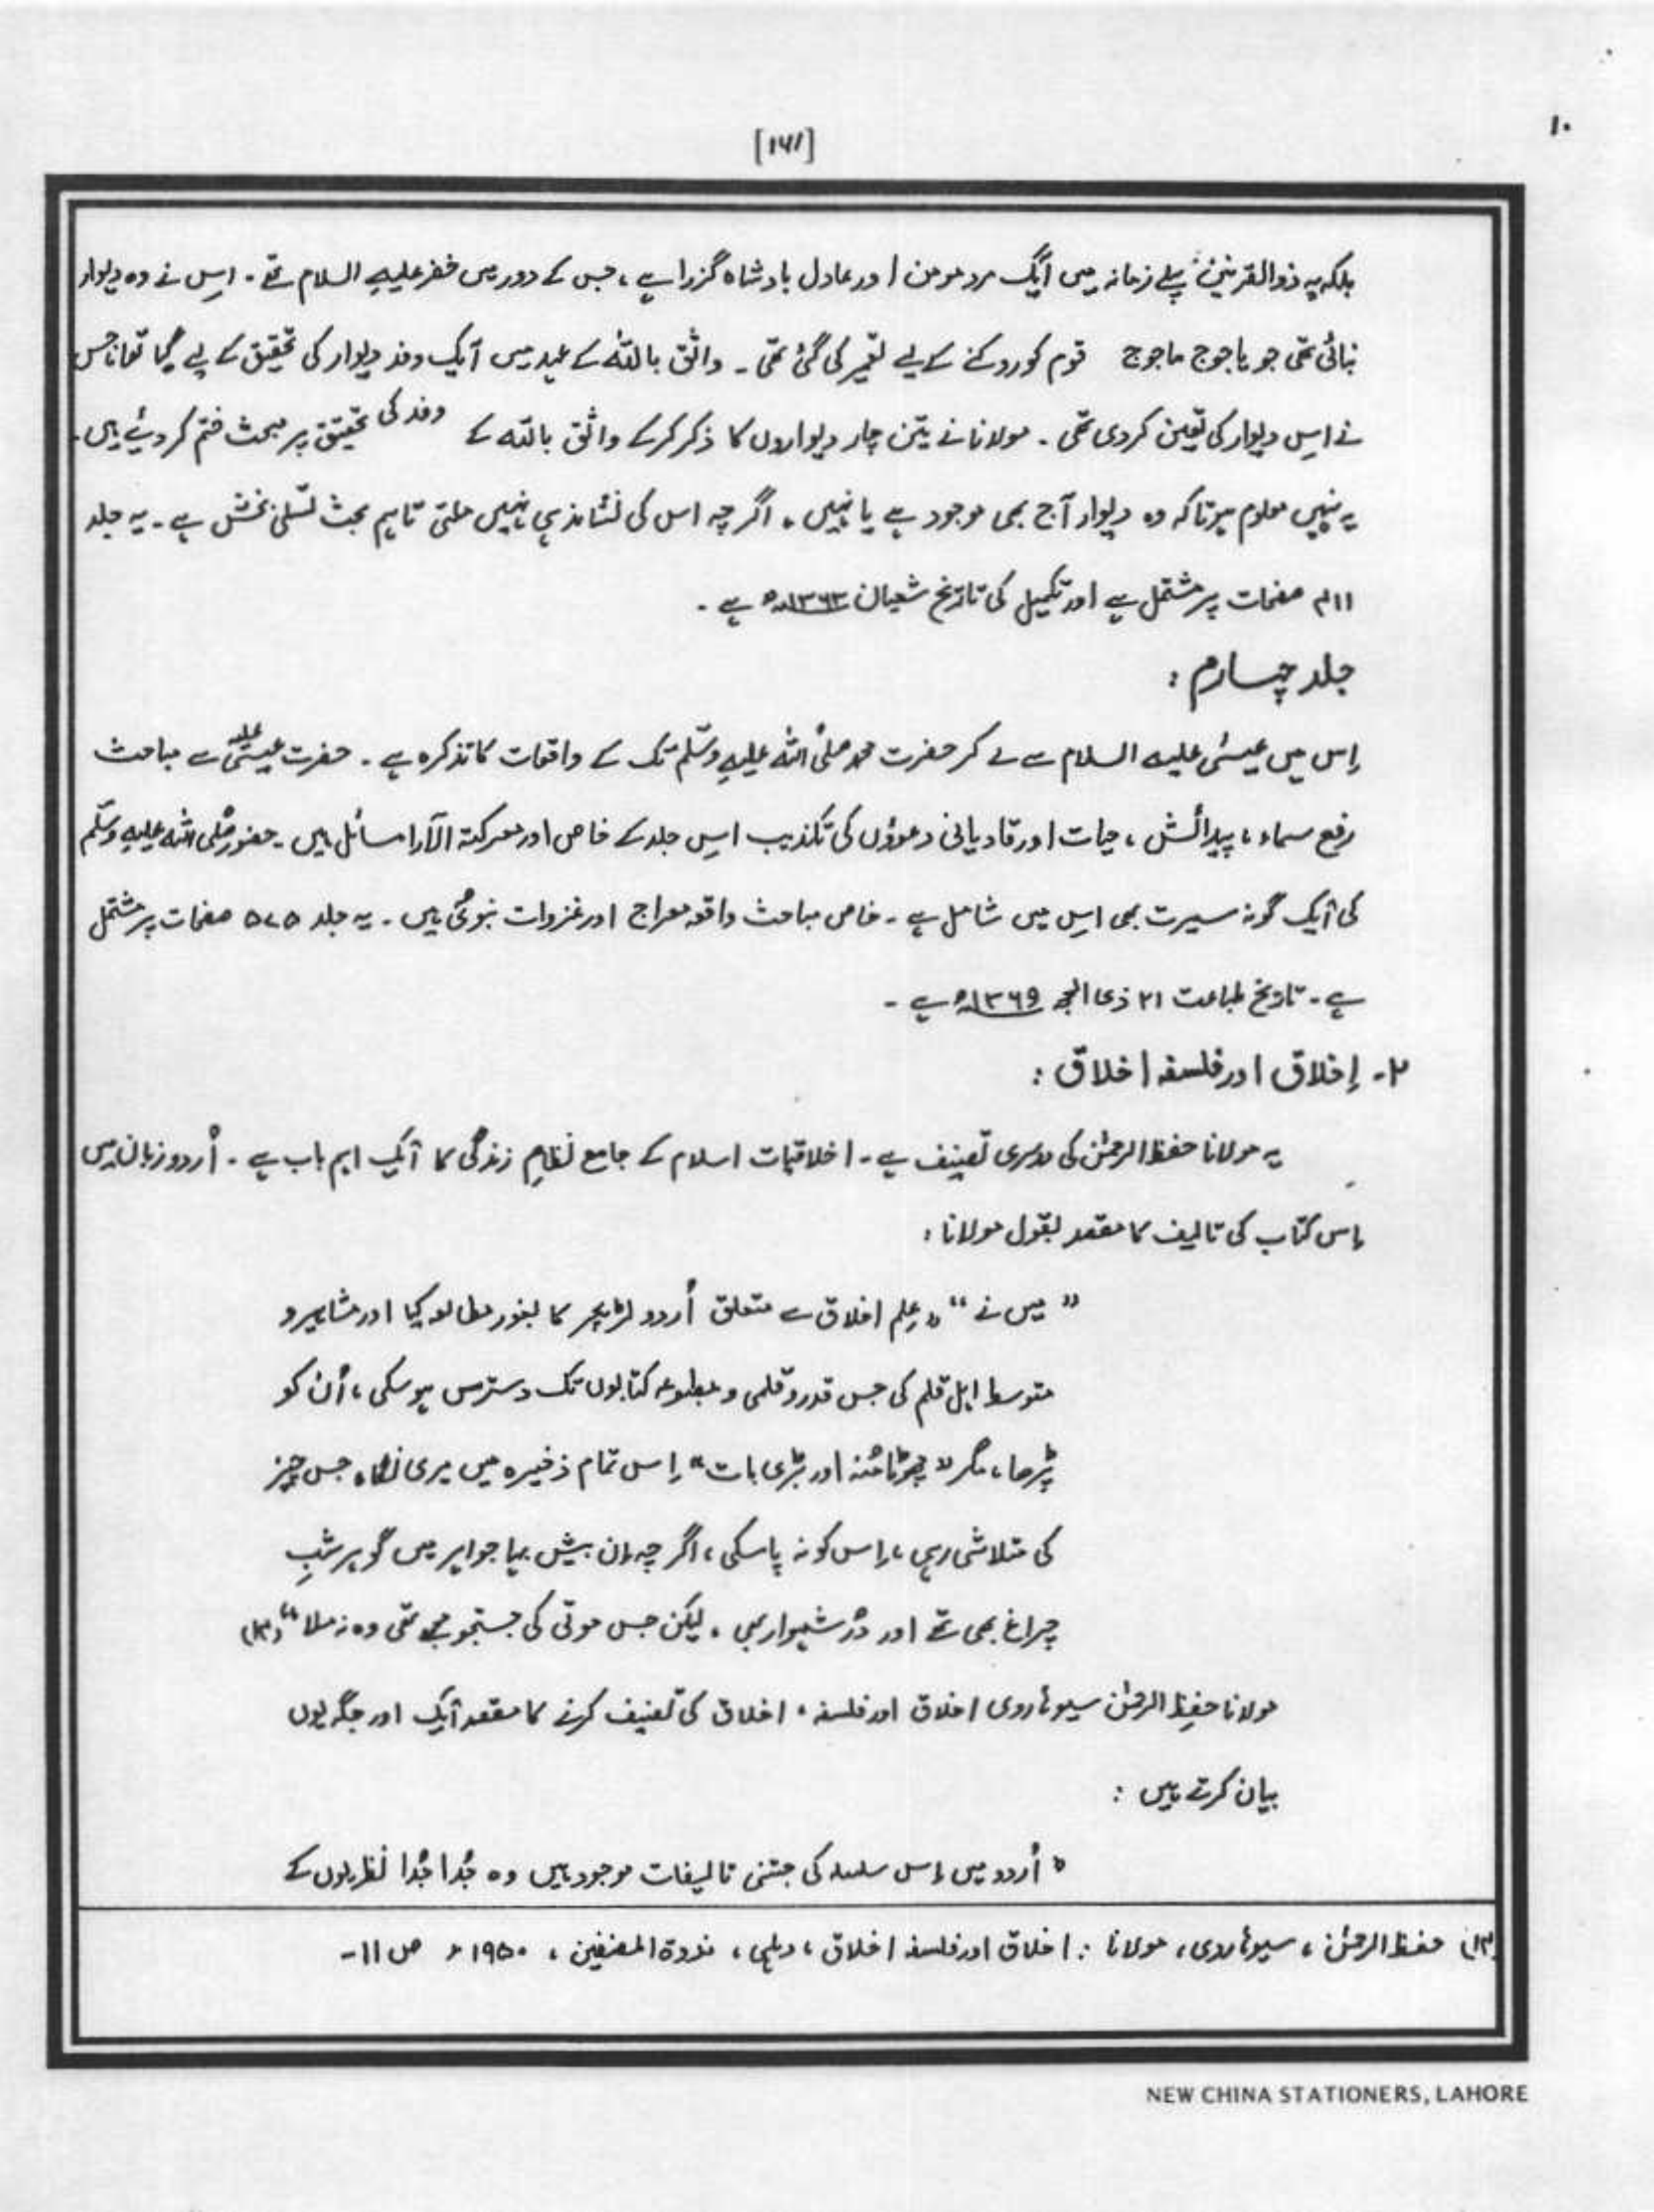 ۱۰
[۱۷۱]
بلکہ یہ ذوالقرنین پہلے زمانہ میں ایک مرد مومن اور عادل بادشاہ گزرا ہے ، جس کے دور میں خضر علیہ السلام تھے ۔ اِس نے وہ دیوار
بنائی تھی جو یاجوج ماجوج قوم کو روکنے کے لیے تعمیر کی گئی تھی ۔ واثق باللہ کے عہد میں ایک وفد دیوار کی تحقیق کے لیے گیا تھا جس
نے اِس دیوار کی تعین کردی تھی ۔ مولانا نے تین چار دیواروں کا ذکر کرکے واثق باللہ کے وفد کی تحقیق پر مبحث ختم کر دیئے ہیں ۔
یہ نہیں معلوم ہوتا کہ وہ دیوار آج بھی موجود ہے یا نہیں ۔ اگرچہ اس کی نشاندہی نہیں ملتی تاہم بحث تسلی بخش ہے ۔ یہ جلد
۴۱۱ صفحات پر مشتمل ہے اور تکمیل کی تاریخ شعبان ۱۳۶۳ھ ہے ۔
جلد چہارم :
اِس میں عیسٰی علیہ السلام سے لے کر حضرت محمد صلی اللہ علیہ وسلّم تک کے واقعات کا تذکرہ ہے ۔ حضرت عیسٰی علیہ سے مباحث
رفع سماء ، پیدائش ، حیات اور قادیانی دعوؤں کی تکذیب اِس جلد کے خاص اور معرکتہ الآرا مسائل ہیں ۔ حضور صلی اللہ علیہ وسلّم
کی ایک گونہ سیرت بھی اِس میں شامل ہے ۔ خاص مباحث واقعہ معراج اور غزوات نبویؐ ہیں ۔ یہ جلد ۵۷۵ صفحات پر مشتمل
ہے ۔ تاریخ طباعت ۲۱ ذی الحجہ ۱۳۶۹ھ ہے ۔
۲۔ اِخلاق اور فلسفہ اخلاق :
یہ مولانا حفظ الرحمٰن کی دوسری تصنیف ہے ۔ اخلاقیات اسلام کے جامع نظامِ زندگی کا ایک اہم باب ہے ۔ اُردو زبان میں
اِس کتاب کی تالیف کا مقصد بقول مولانا :
” میں نے “ ” عِلم اخلاق سے متعلق اُردو لٹریچر کا بغور مطالعہ کیا اور مشاہیر و
متوسط اہلِ قلم کی جس قدر و قلمی و مطبوعہ کتابوں تک دسترس ہو سکی ، اُن کو
پڑھا ، مگر ” چھوٹا مُنہ اور بڑی بات “ اِس تمام ذخیرہ میں میری نگاہ جس چیز
کی متلاشی رہی ، اِس کو نہ پا سکی ، اگرچہ اِن بیش بہا جواہر میں گوہر شبِ
چراغ بھی تھے اور دُرِّ شہوار بھی ۔ لیکن جس موتی کی جستجو مجھے تھی وہ نہ ملا “ (۱۳)
مولانا حفِظ الرحمٰن سیوہاروی اخلاق اور فلسفہ ء اخلاق کی تصنیف کرنے کا مقصد ایک اور جگہ یوں
بیان کرتے ہیں :
” اُردو میں اِس سلسلہ کی جتنی تالیفات موجود ہیں وہ جُدا جُدا نظریوں کے
(۱۳) حفظ الرحمٰن ، سیوہاروی ، مولانا : اخلاق اور فلسفہ اخلاق ، دہلی ، ندوۃ المصنفین ، ۱۹۵۰ء ص ۱۱ -
NEW CHINA STATIONERS, LAHORE